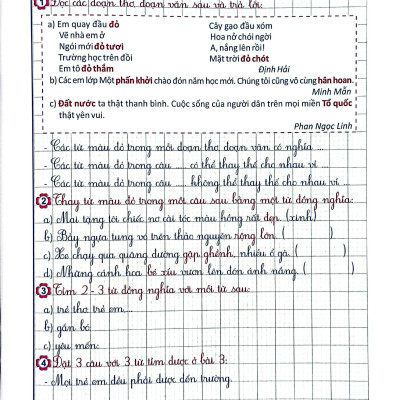 1 Đọc các đoạn thơ, đoạn văn sau và trả lời:
a) Em quay đầu đỏ
Vẽ nhà em ở
Ngói mới đỏ tươi
Trường học trên đồi
Em tô đỏ thắm
Cây gạo đầu xóm
Hoa nở chói ngời
A, nắng lên rồi!
Mặt trời đỏ chót
Định Hải
b) Các em lớp Một phấn khởi chào đón năm học mới. Chúng tôi cũng vô cùng hân hoan.
Minh Mẫn
c) Đất nước ta thật thanh bình. Cuộc sống của người dân trên mọi miền Tổ quốc
thật yên vui.
Phan Ngọc Linh
- Các từ màu đỏ trong mỗi đoạn thơ, đoạn văn có nghĩa ...
- Các từ màu đỏ trong câu ... có thể thay thế cho nhau vì ...
- Các từ màu đỏ trong câu ... không thể thay thế cho nhau vì ...
2 Thay từ màu đỏ trong mỗi câu sau bằng một từ đồng nghĩa:
a) Mai tặng tôi chiếc nơ cài tóc màu hồng rất đẹp. (xinh)
b) Bầy ngựa tung vó trên thảo nguyên rộng lớn. ( )
c) Xe chạy qua quãng đường gập ghềnh, nhiều ổ gà. ( )
d) Những cánh hoa bé xíu vươn lên đón ánh nắng. ( )
3 Tìm 2 - 3 từ đồng nghĩa với mỗi từ sau:
a) trẻ thơ: trẻ em, ...
b) gắn bó:
c) yêu mến:
4 Đặt 3 câu với 3 từ tìm được ở bài 3:
- Mọi trẻ em đều phải được đến trường.